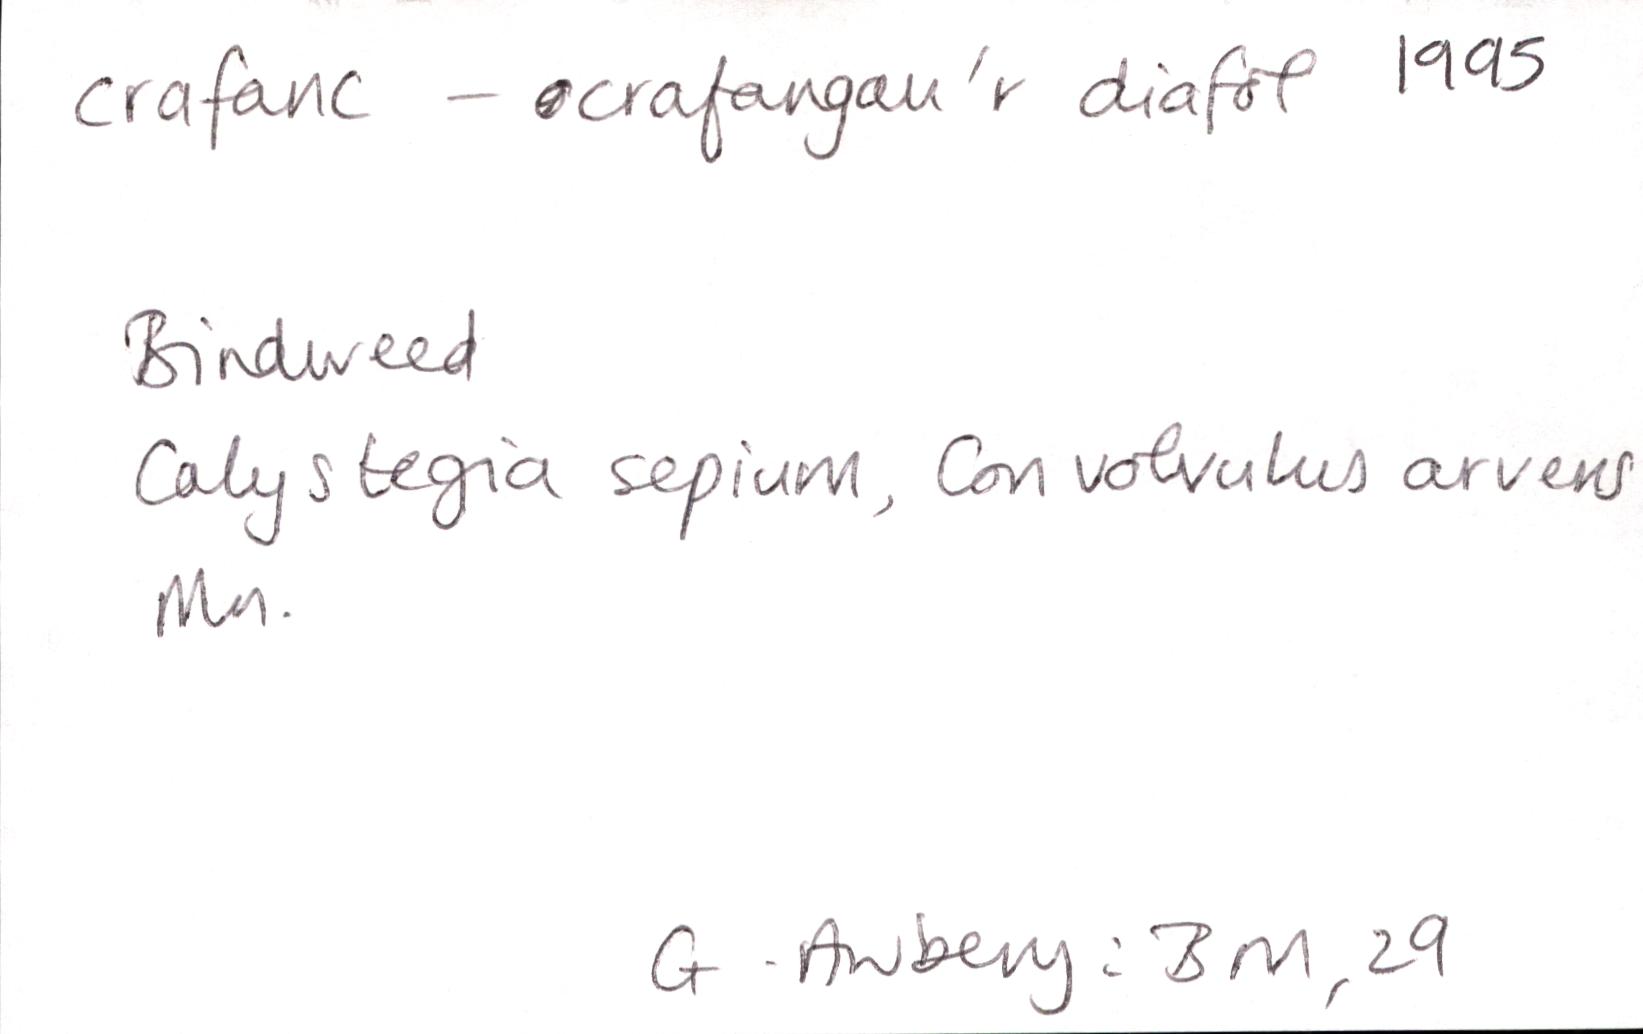 crafanc – crafangau'r diafol 1995
Bindweed
Calystegia sepium, Convolvulus arvens
Mn.
G. Awbery: BM, 29